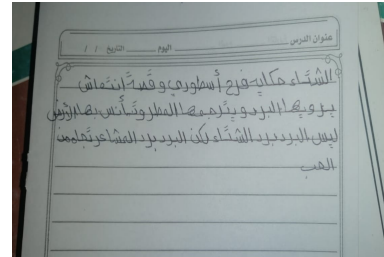 عنوان الدرس ـــــــ اليوم ـــــــ التاريخ / /
الشتاء حكاية فرح أسطوري وقصة انتعاش
يرويها البرد ويترجمها المطر وتأنس بها الأرض
ليس البرد برد الشتاء لكن البرد برد المشاعر تجاه من
الحب